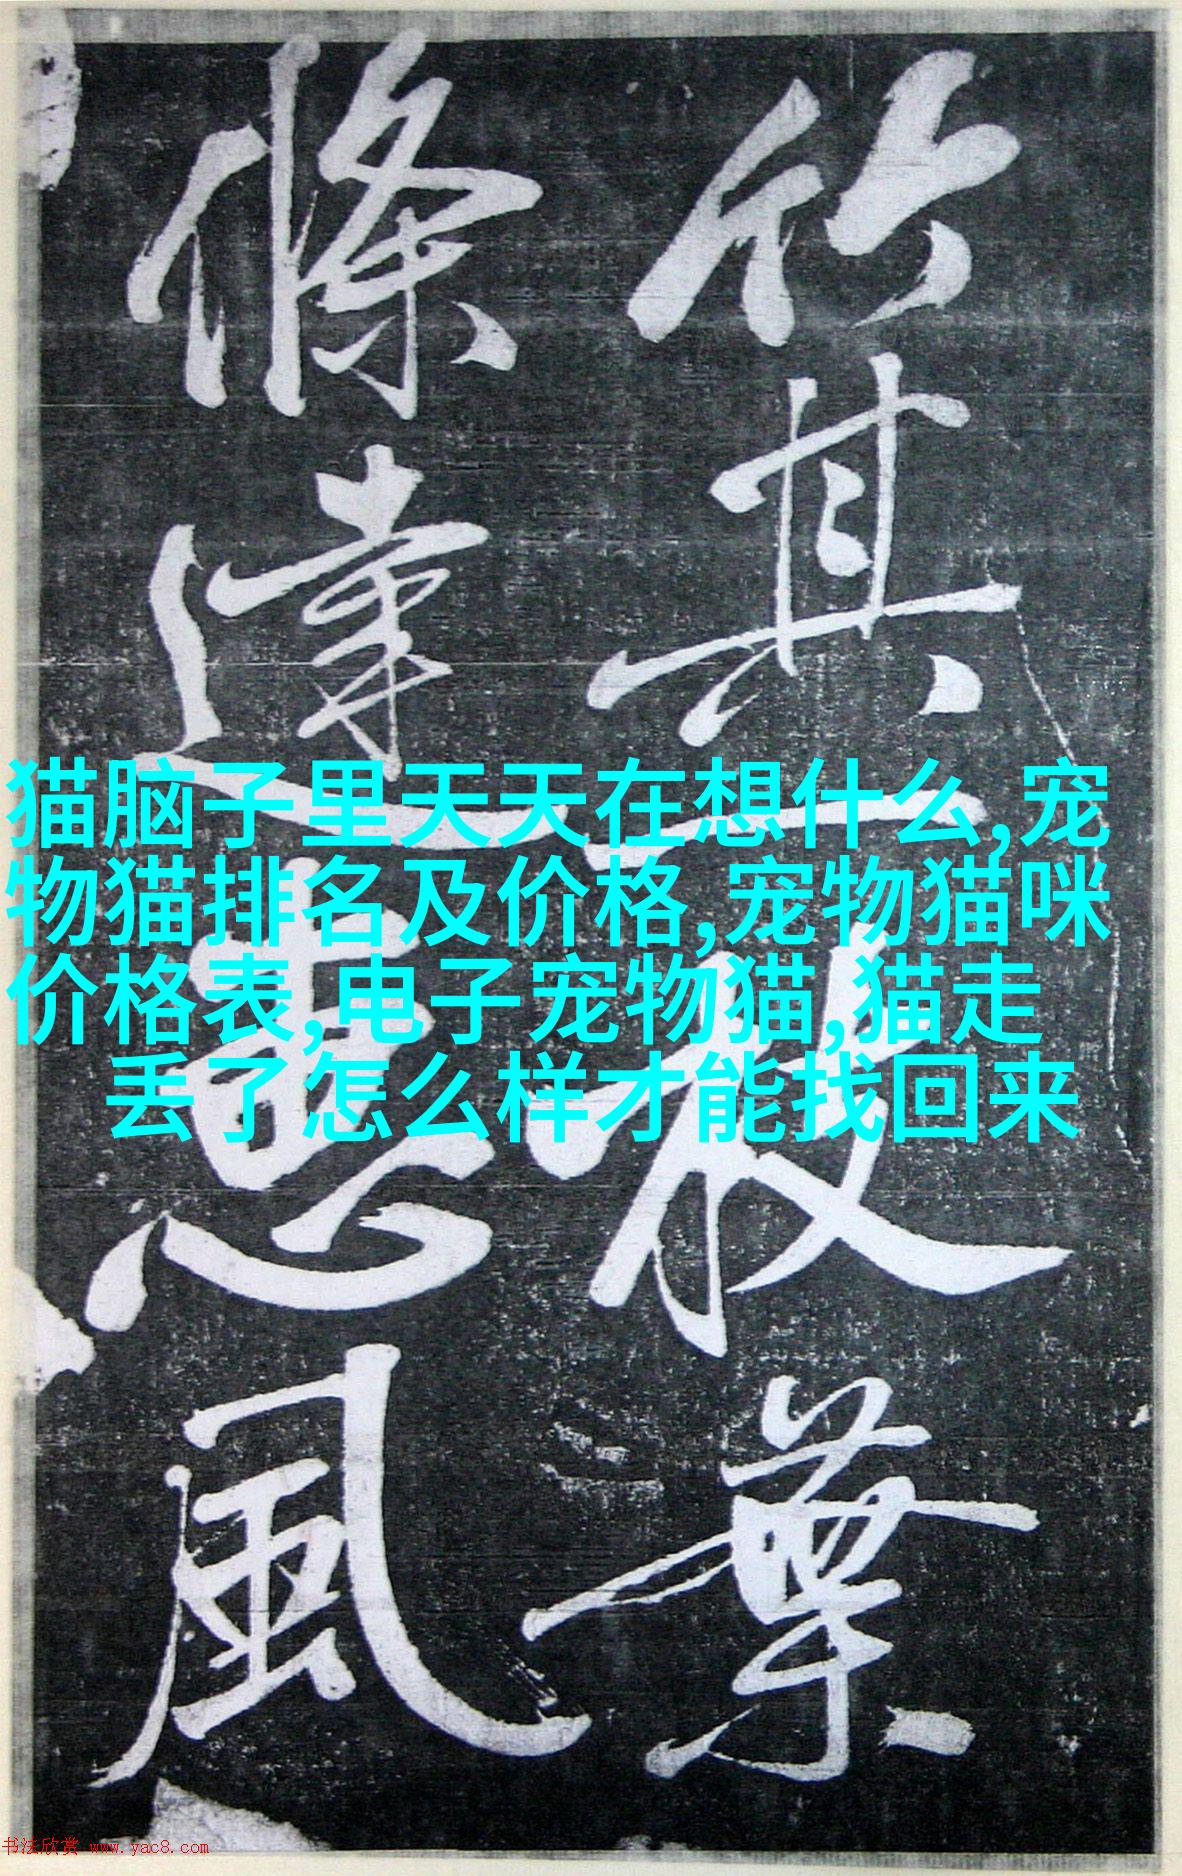 竹其一枝葉
條達惠風
猫脑子里天天在想什么,宠
物猫排名及价格,宠物猫咪
价格表,电子宠物猫,猫走
丢了怎么样才能找回来
书法欣赏 www.yac8.com